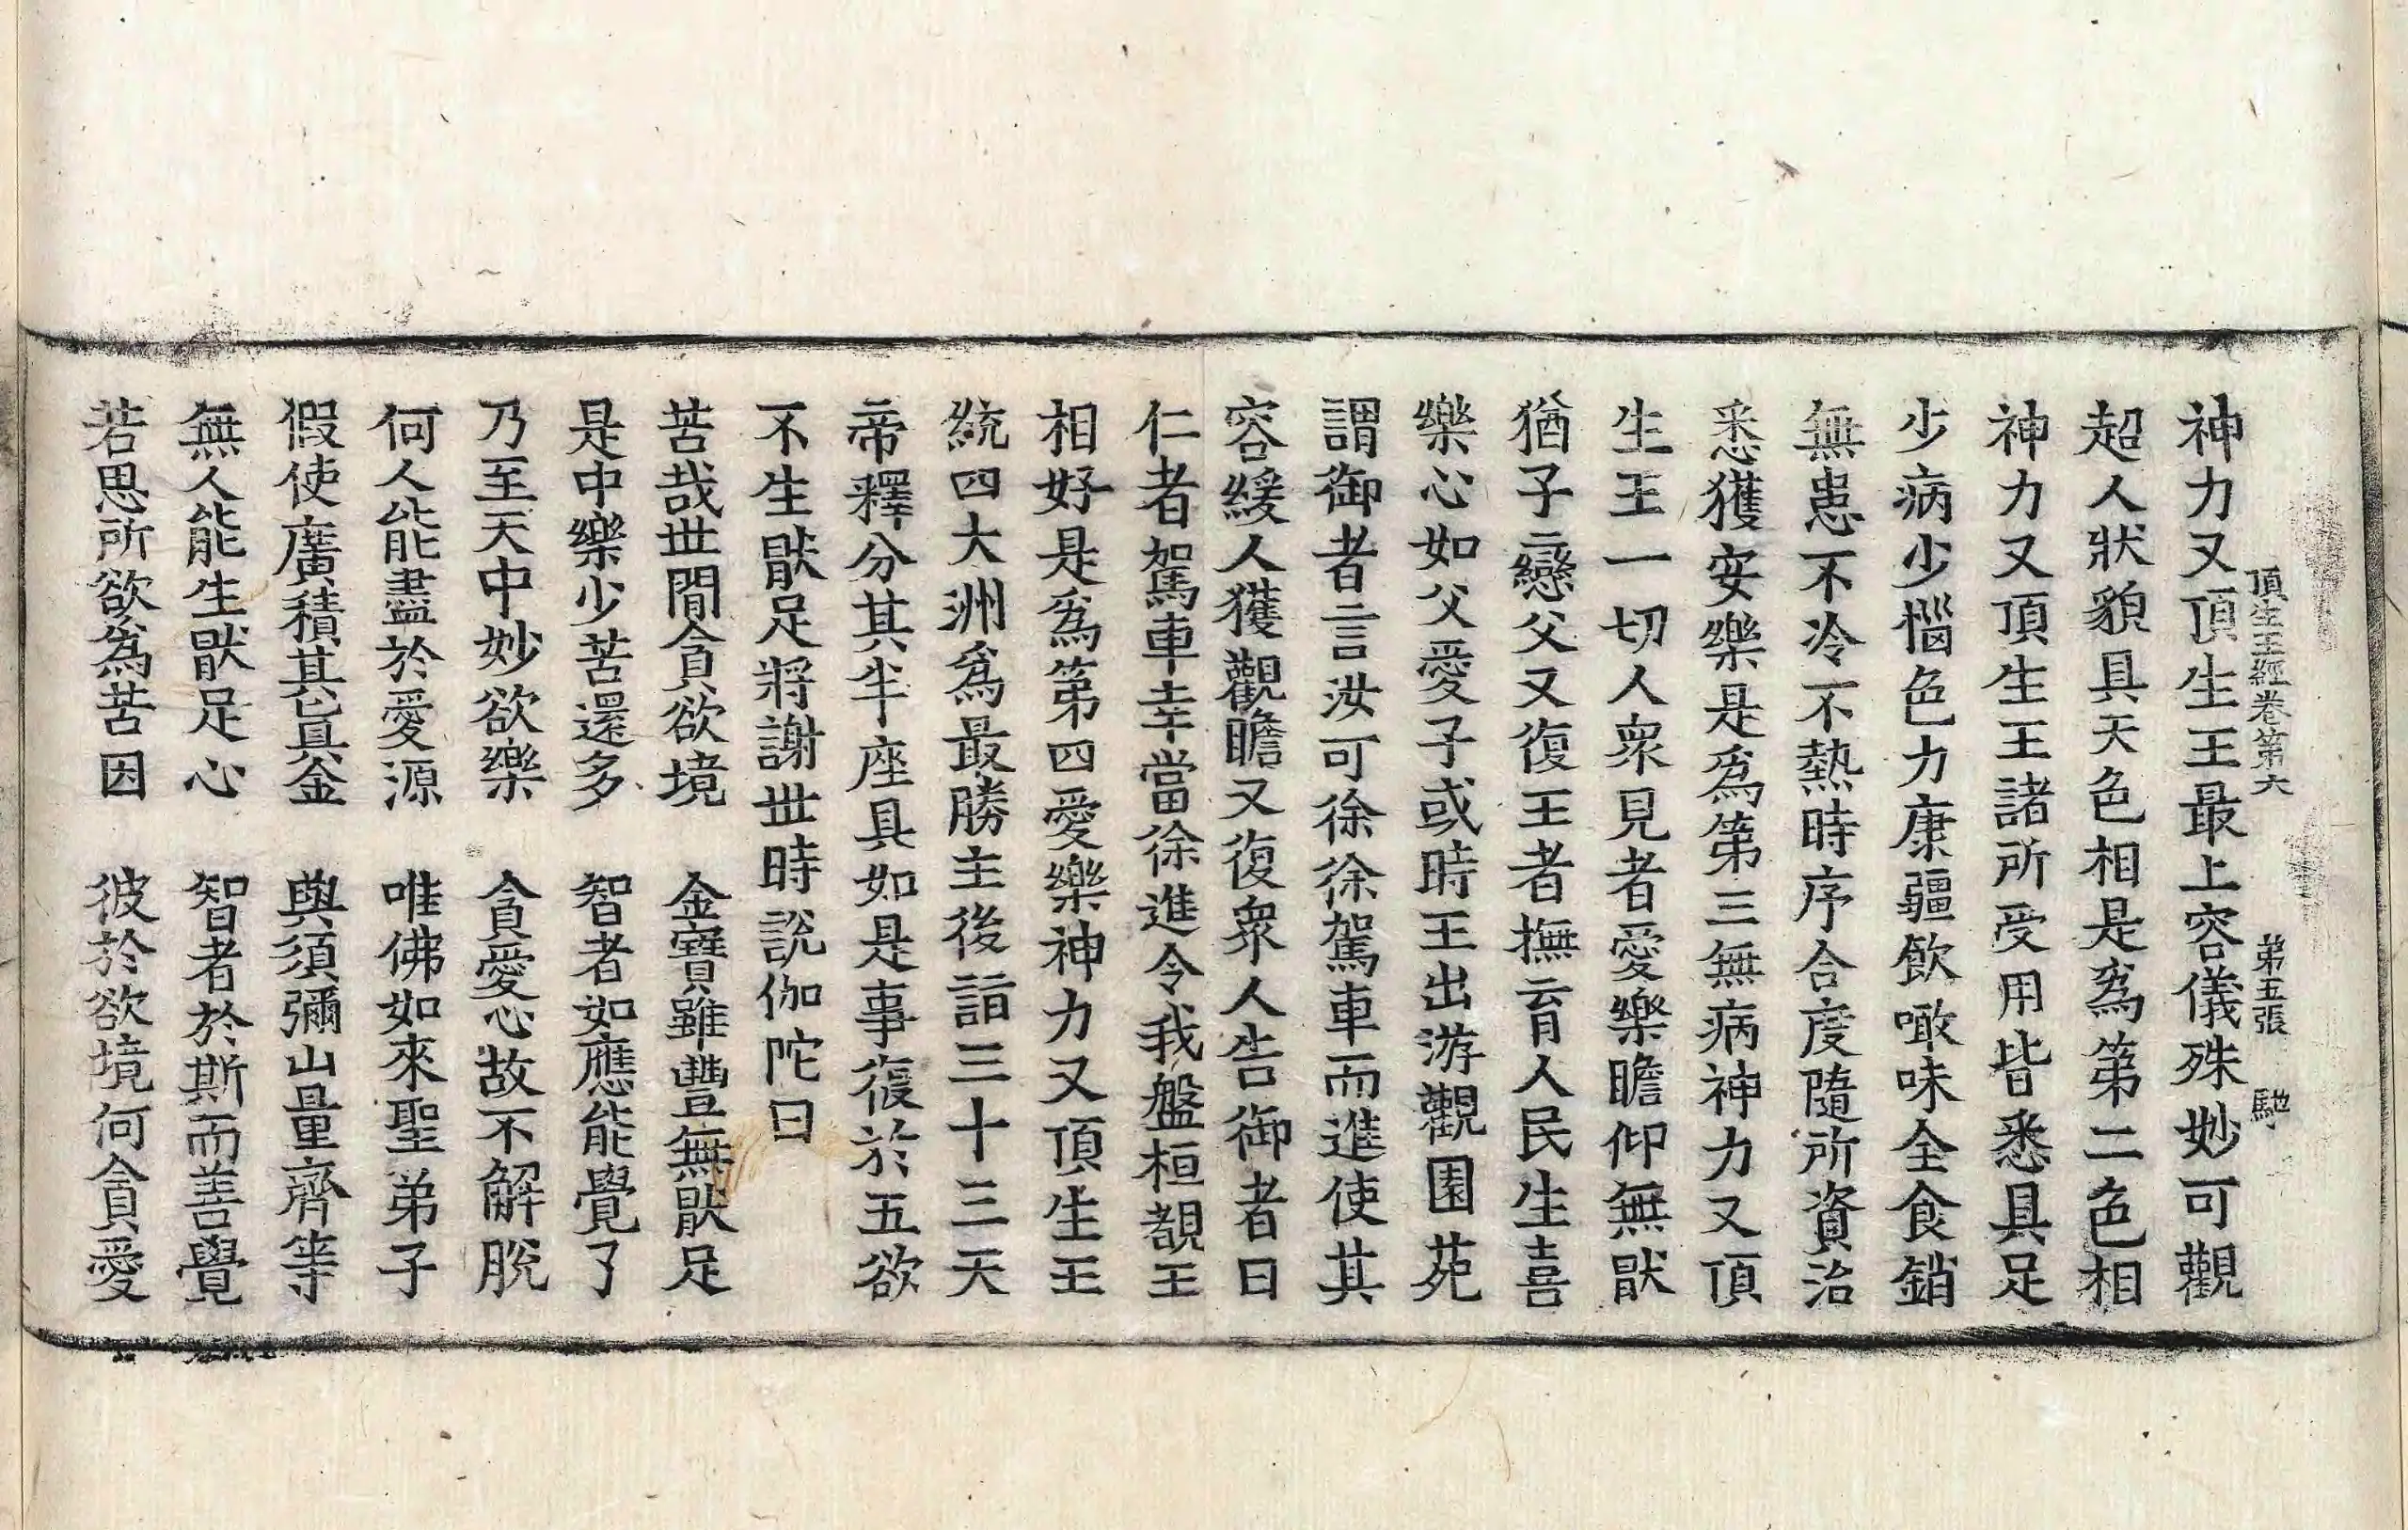 頂生王經卷第六 弟五張 馳
神力又頂生王最上容儀殊妙可觀
超人狀貌具天色相是爲第二色相
神力又頂生王諸所受用皆悉具足
少病少惱色力康彊飲噉味全食銷
無患不冷不熱時序合度隨所資治
悉獲安樂是爲第三無病神力又頂
生王一切人衆見者愛樂瞻仰無猒
猶子戀父又復王者撫育人民生喜
樂心如父愛子或時王出游觀園苑
謂御者言汝可徐徐駕車而進使其
容緩人獲觀瞻又復衆人告御者曰
仁者駕車幸當徐進令我盤桓覩王
相好是爲第四愛樂神力又頂生王
統四大洲爲最勝主後詣三十三天
帝釋分其半座具如是事復於五欲
不生猒足將謝世時說伽陀曰
苦哉世閒貪欲境 金寶雖豐無猒足
是中樂少苦還多 智者如應能覺了
乃至天中妙欲樂 貪愛心故不解脫
何人能盡於愛源 唯佛如來聖弟子
假使廣積其眞金 與須彌山量齊等
無人能生猒足心 智者於斯而善覺
若思所欲爲苦因 彼於欲境何貪愛